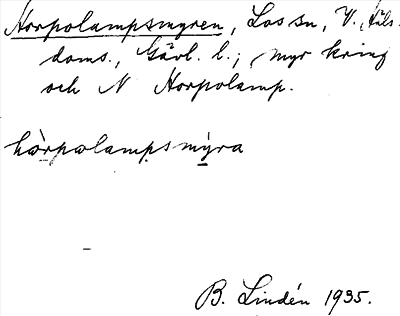 Horpolampsmyren, Los sn, V. Häls.
doms., Gävl. l.; myr kring
och N Horpolamp.
hòrpωlampsmỳra
B. Lindén 1935.